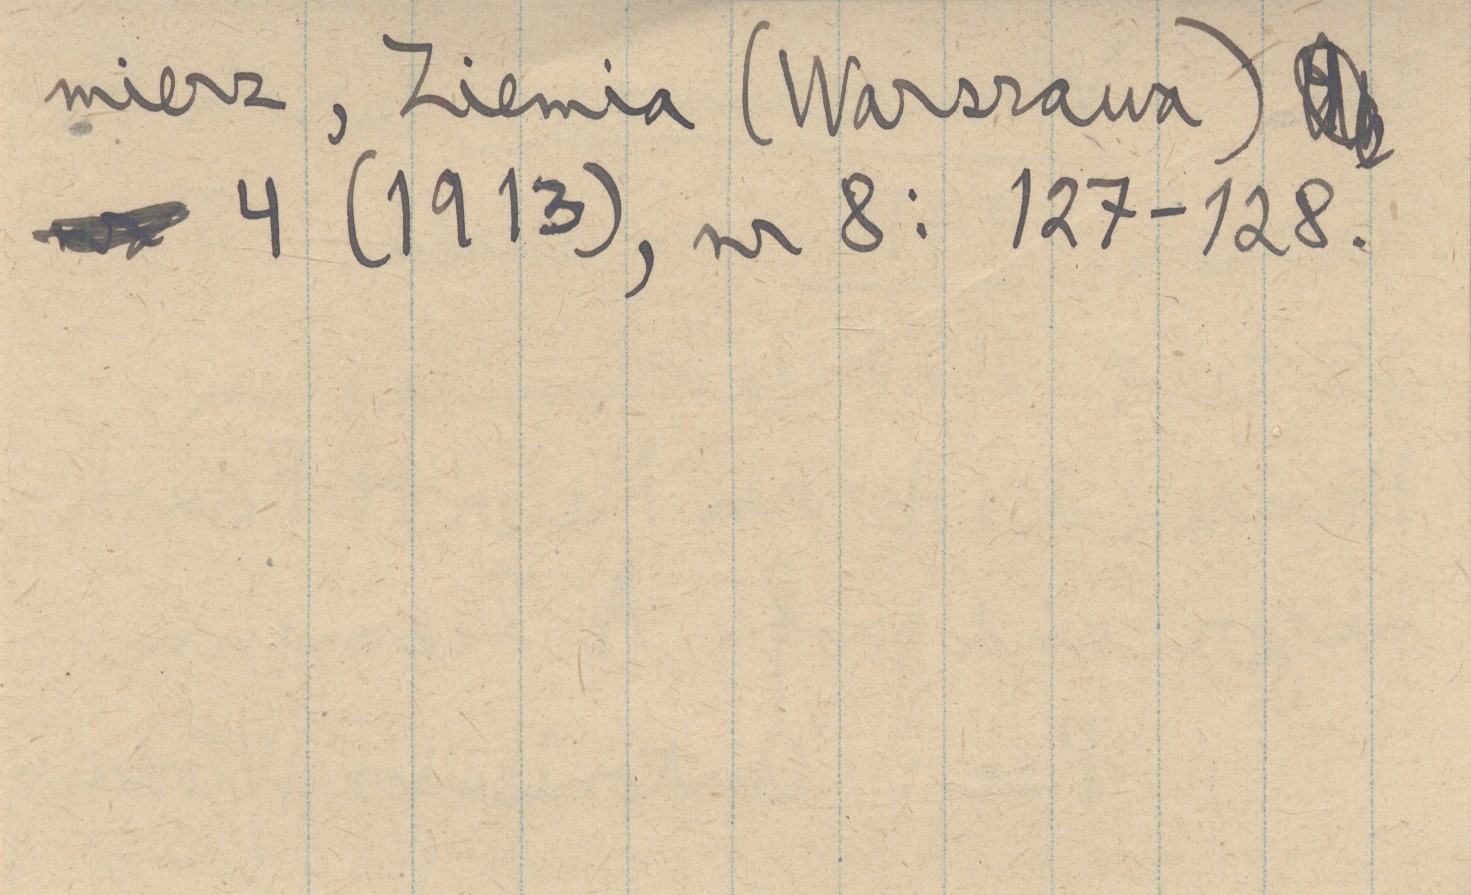 mierz, Ziemia (Warszawa)
4 (1913), nr 8: 127-128.